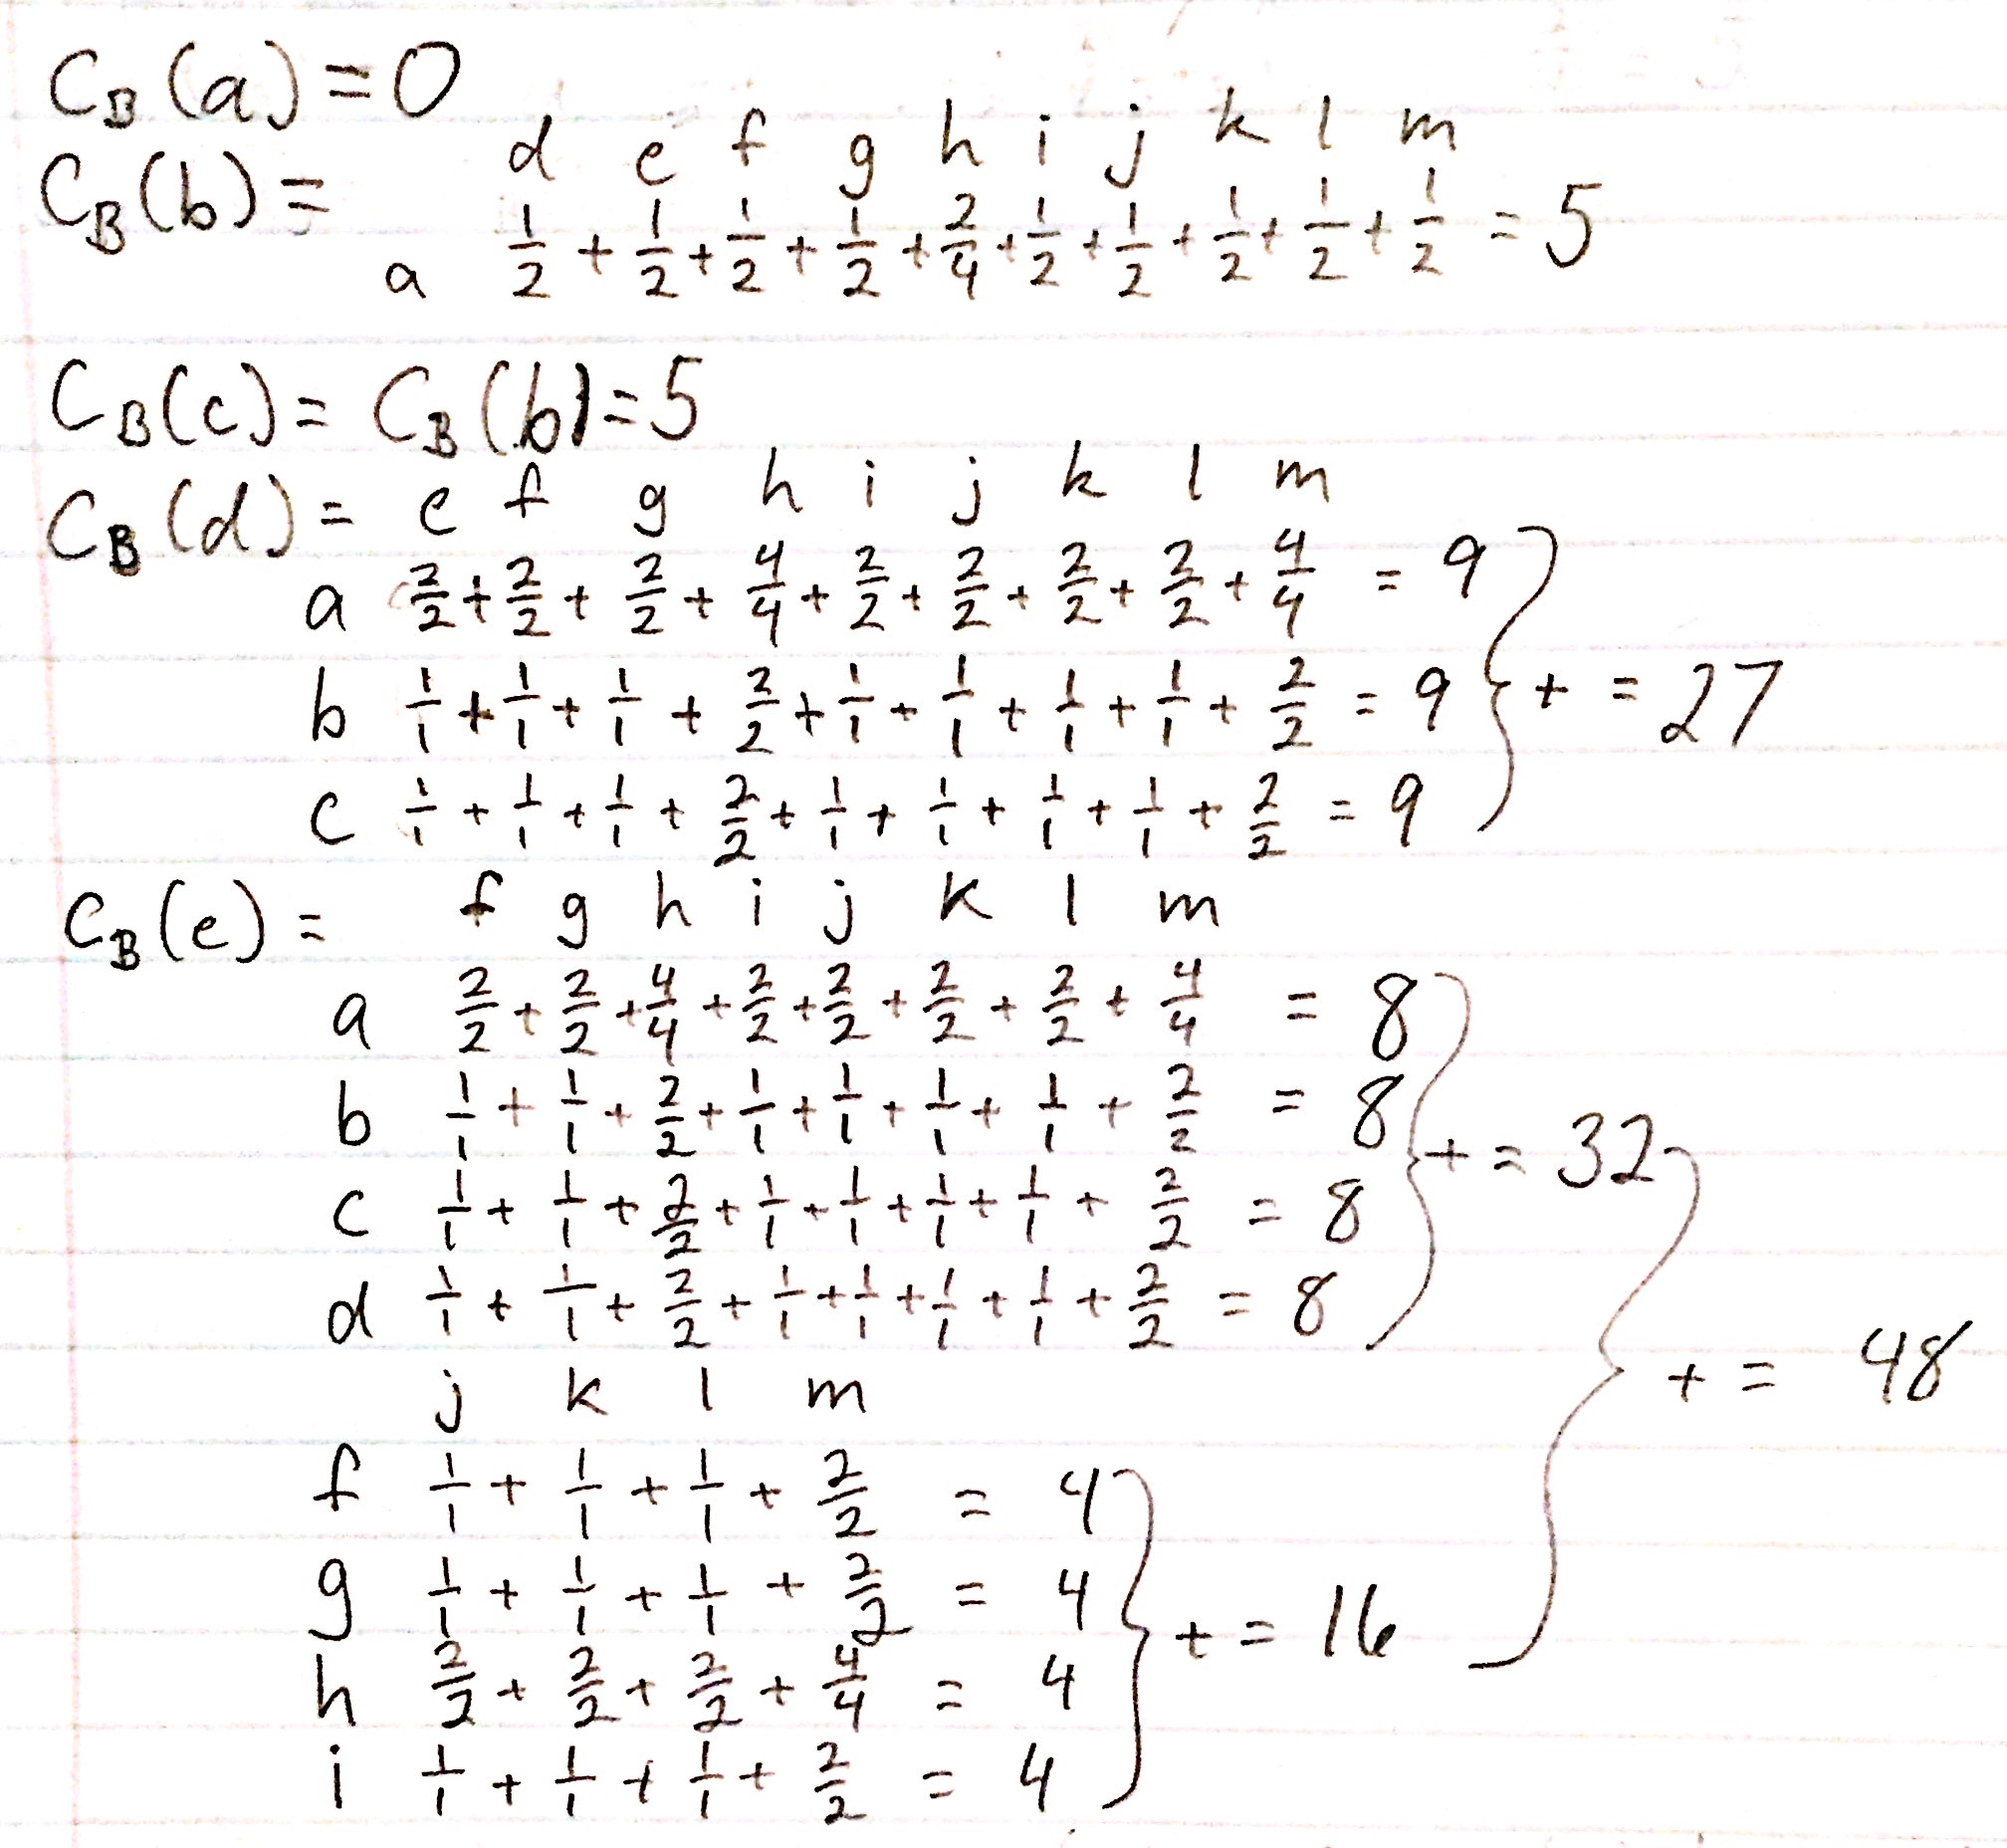 C_B(a) = 0
d e f g h i j k l m
C_B(b) =
a 1/2 + 1/2 + 1/2 + 1/2 + 2/4 + 1/2 + 1/2 + 1/2 + 1/2 + 1/2 = 5
C_B(c) = C_B(b) = 5
C_B(d) = e f g h i j k l m
a 2/2 + 2/2 + 2/2 + 4/4 + 2/2 + 2/2 + 2/2 + 2/2 + 4/4 = 9
b 1/1 + 1/1 + 1/1 + 2/2 + 1/1 + 1/1 + 1/1 + 1/1 + 2/2 = 9 } + = 27
c 1/1 + 1/1 + 1/1 + 2/2 + 1/1 + 1/1 + 1/1 + 1/1 + 2/2 = 9
C_B(e) = f g h i j k l m
a 2/2 + 2/2 + 4/4 + 2/2 + 2/2 + 2/2 + 2/2 + 4/4 = 8
b 1/1 + 1/1 + 2/2 + 1/1 + 1/1 + 1/1 + 1/1 + 2/2 = 8 } + = 32
c 1/1 + 1/1 + 2/2 + 1/1 + 1/1 + 1/1 + 1/1 + 2/2 = 8
d 1/1 + 1/1 + 2/2 + 1/1 + 1/1 + 1/1 + 1/1 + 2/2 = 8
} + = 48
j k l m
f 1/1 + 1/1 + 1/1 + 2/2 = 4
g 1/1 + 1/1 + 1/1 + 2/2 = 4 } + = 16
h 2/2 + 2/2 + 2/2 + 4/4 = 4
i 1/1 + 1/1 + 1/1 + 2/2 = 4